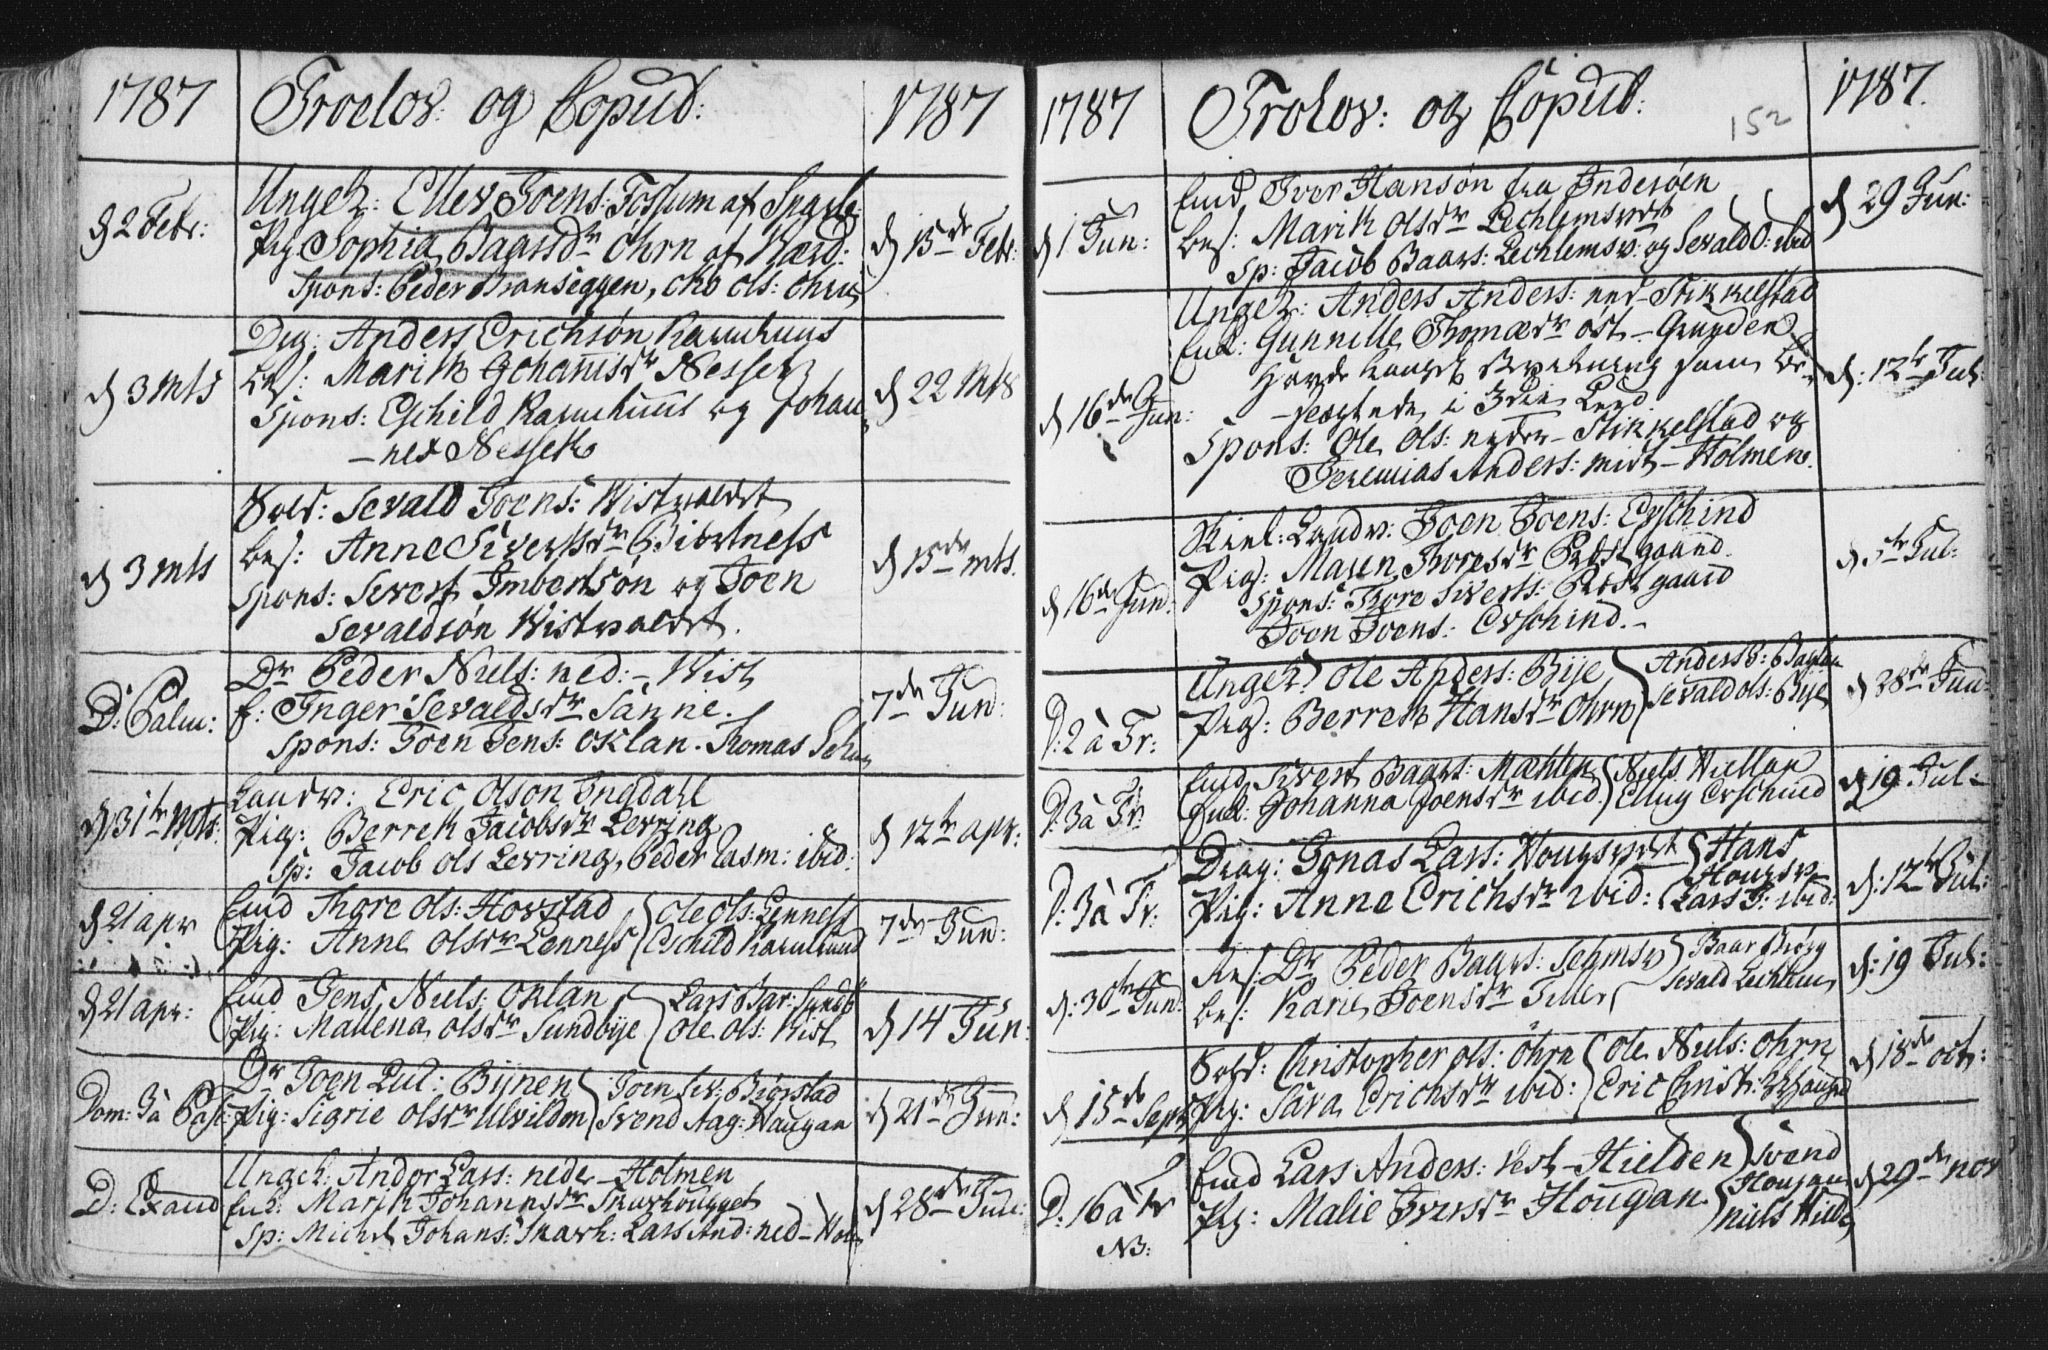 1787 Troelov: og Copul: 1787
d 2 Febr:
Ungek: Ellev Joens: Fossum af Sparb:
Pig Sophia Baarsdr Öhrn af Værd:
Spons: Peder Transeggen, Ole Ols: Öhrn
d 15de Febr:
d 3 Mts
Drg: Anders Erichsön Karmhuus
bes: Marith Johannisdr Nesset
Spons: Eschild Karmhuus og Johan
-nes Nesset
d 22 Mts
d 3 Mts
Sold: Sevald Joens: Wistvaldt
bes: Anne Sivertsdr Biörtness
Spons: Severt Imbertsön og Joen
Sevaldsön Wistvaldt.
d 15de Mts.
D: Palm:
Dr Peder Niels: ned: - Wist
f: Inger Sevaldsdr Sanne.
Spons: Joen Jens: Oklan. Thomas
7de Jun:
d 31te Mts:
Landv: Eric Olson Ingdahl
Pig: Berreth Jacobsdr Levring
Sp: Jacob Ols Levring, Peder Rasm: ibid:
d 12te apr:
d 21 apr
Emd Thore Ols: Hovstad
Pig: Anne Olsdr Lenness
Ole Ols: Lenness
Eschild Karmhuus
7de Jun:
d 21 apr:
Emd Jens Niels: Oklan
Pig: Mallena Olsdr Sundbye
Lars Bar: Sundb:
Ole Ols: Wist
d 14 Jun:
Dom: 3 à Pasc:
Dr Joen Pul: Bijnen
Pig: Sigrie Olsdr Ulvilden
Joen Siv: Biörstad
Svend Aag: Haugan
d 21de Jun:
D: Exaud
Ungek: Andor Lars: nedr - Holmen
Enk: Marith Johannsdr Skarhougget
Sp: Michel Johans: Skarh: Lars And: ned - Hol
d 28de Jun:
1787 Trolov: og Copul: 152 1787.
d 1 Jun:
Emd Iver Hansön fra Inderöen
bes: Marith Olsdr Lechlemsvalt
Sp: Jacob Baars: Lechlemsv: og Sevald O: ibid
d 29 Jun:
d 16de Jun:
Ungek: Anders Anders: ned - Stikkelstad
Enk: Gunnille Thomædr öst - Grunden
Havde Kongel Bevilning som be
i 3die Leed
Spons: Ole Ols: neder - Stikkelstad og
Jeremias Anders: midt - Holmen.
d: 12te Jul:
d 16de Jun:
Skiel: Landv: Joen Joens: Erschind
Pig: Maren Thoresdr Prestgaard.
Spons: Thore Siverts: Prestgaard
Joen Joens: Erschind. -
d 5te Jul:
D: 2 à Tr:
Ungek: Ole Anders: Bije
Pig: Berreth Hansdr Öhrn
Sevald Ols: Bije
d 28de Jun:
D: 3 à Tr:
Emd Sivert Baars: Mæhlen
Enk: Johanna Joensdr ibid
Niels Wullan
Ellug Erschind
d 19 Jul -
D: 3 à Tr:
Drag: Jonas Lars: Hougsvalt
Pig: Anne Erichsdr ibid:
Hans
Hougsv
Lars J: ibid:
d: 12te Jul:
d: 30te Jun:
Res: Dr Peder Baars: Selmsv
bes: Karie Joensdr Tiller
Baar Biörg
Sevald Lechlem
d: 19 Jul:
d 15de Septr
Sold: Christopher Ols: Öhrn
Pig: Sara Erichsdr ibid:
Ole Niels: Öhrn
Eric Christ:
d 18de Octr:
D: 16 à Tr
NB:
Emd Lars Anders: Vest - Hielden
Pig: Malie Iversdr Hougan
Svend
Hougan
Niels Hield
d 29de Nov